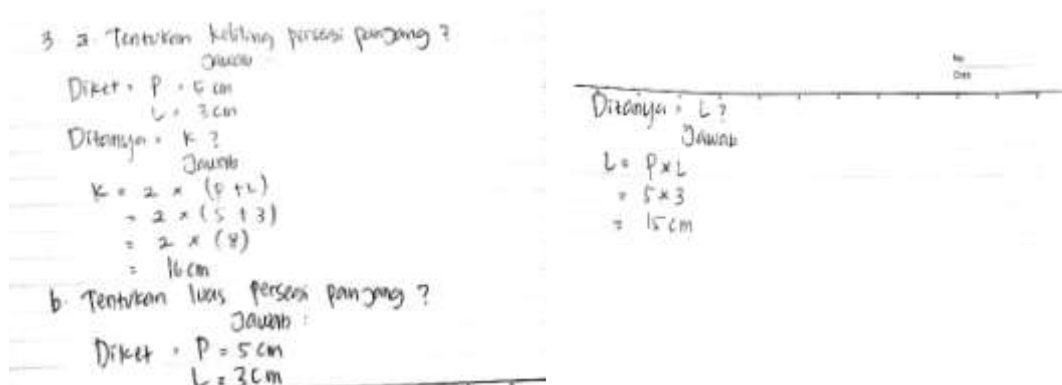 3 a. Tentukan keliling persegi panjang ?
Jawab
Diket = P = 5 cm
L = 3 cm
Ditanya = K ?
Jawab
K = 2 × (P + L)
= 2 × (5 + 3)
= 2 × (8)
= 16 cm
b. Tentukan luas persegi panjang ?
Jawab :
Diket = P = 5 cm
L = 3 cm
No
Date
Ditanya = L ?
Jawab
L = P × L
= 5 × 3
= 15 cm